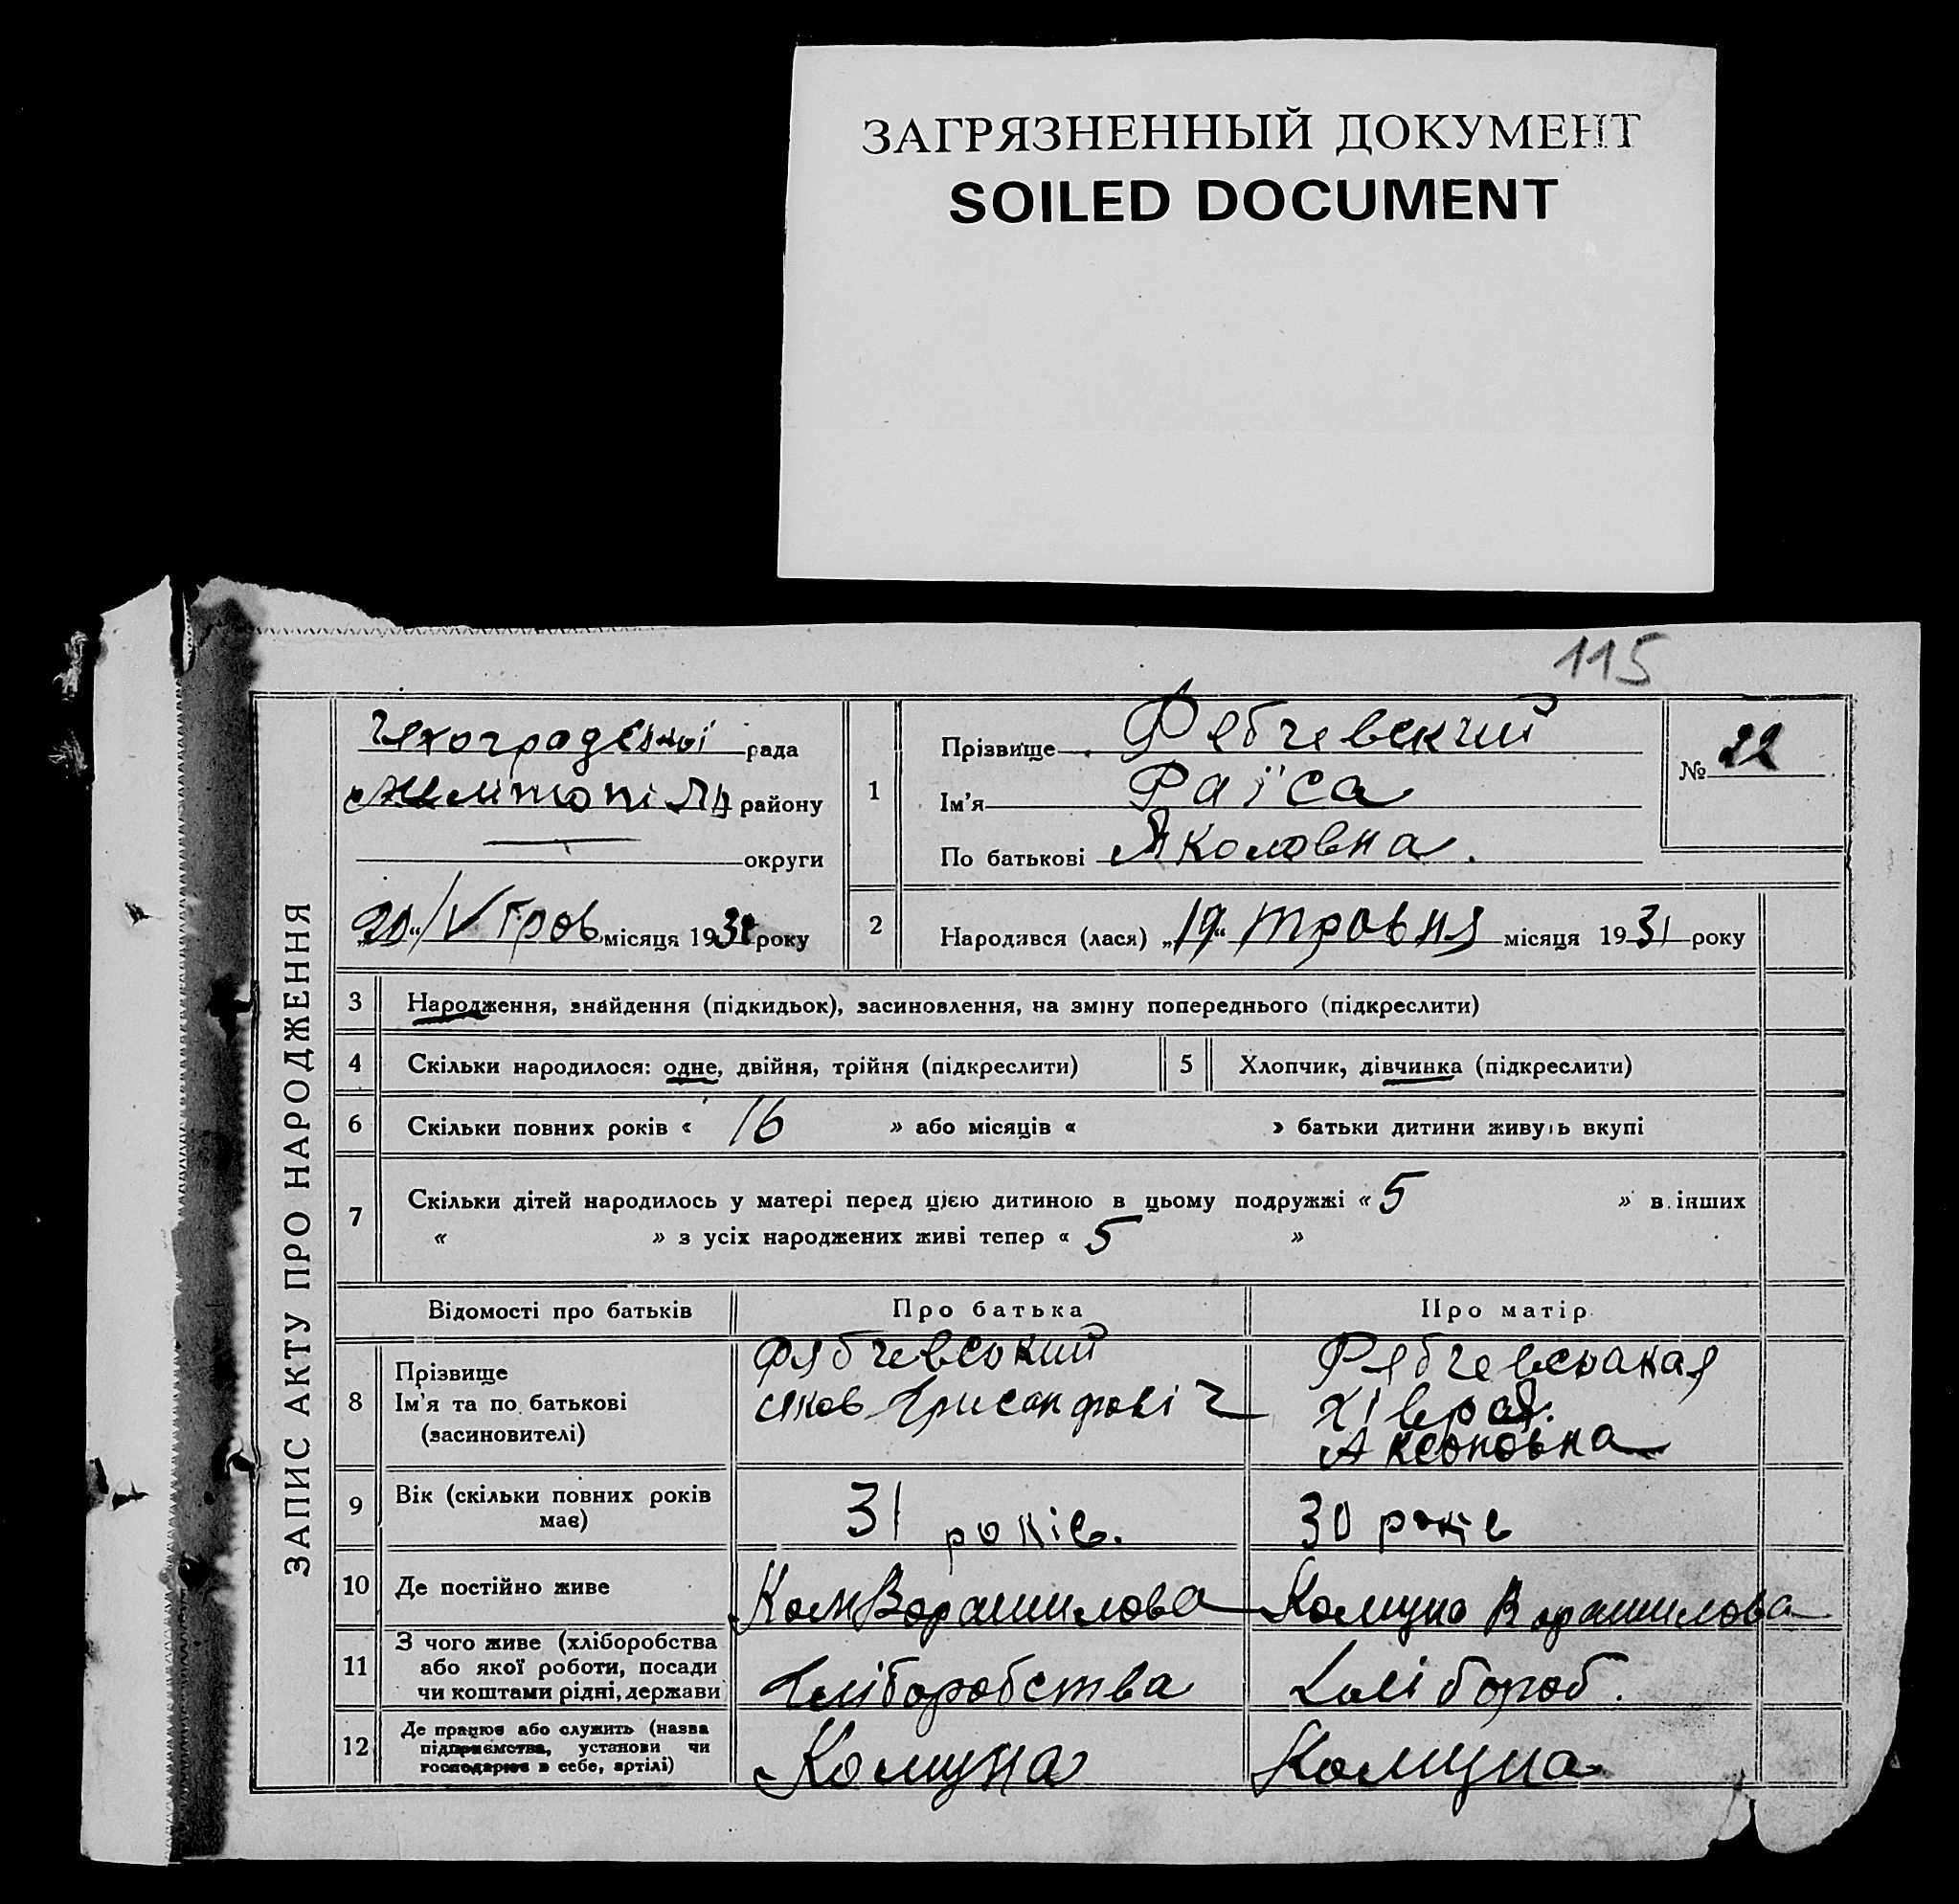 ЗАГРЯЗНЕННЫЙ ДОКУМЕНТ
SOILED DOCUMENT
115
ЗАПИС АКТУ ПРО НАРОДЖЕННЯ
рада
району
округи
„20“ V трав місяця 1931 року
1
Прізвище Рябчевский
Ім'я Раїса
По батькові Якововна.
№ 22
2
Народився (лася) „19“ травня місяця 1931 року
3 Народження, знайдення (підкидьок), засиновлення, на зміну попереднього (підкреслити)
4 Скільки народилося: одне, двійня, трійня (підкреслити)
5 Хлопчик, дівчинка (підкреслити)
6 Скільки повних років « 16 » або місяців « » батьки дитини живуть вкупі
7 Скільки дітей народилось у матері перед цією дитиною в цьому подружжі « 5 » в інших
« » з усіх народжених живі тепер « 5 »
Відомості про батьків Про батька Про матір
8 Прізвище
Ім'я та по батькові
(засиновителі)
Рябчевський
Яков
Рябчевськая
9 Вік (скільки повних років
має)
31 років.
30 років
10 Де постійно живе Ком Ворашилова Комуна Ворашилова
11 З чого живе (хліборобства
або якої роботи, посади
чи коштами рідні, держави
Хліборобства
Хлібороб.
12 Де працює або служить (назва
підприємства, установи чи
господарює в себе, артілі)
Комуна
Комуна